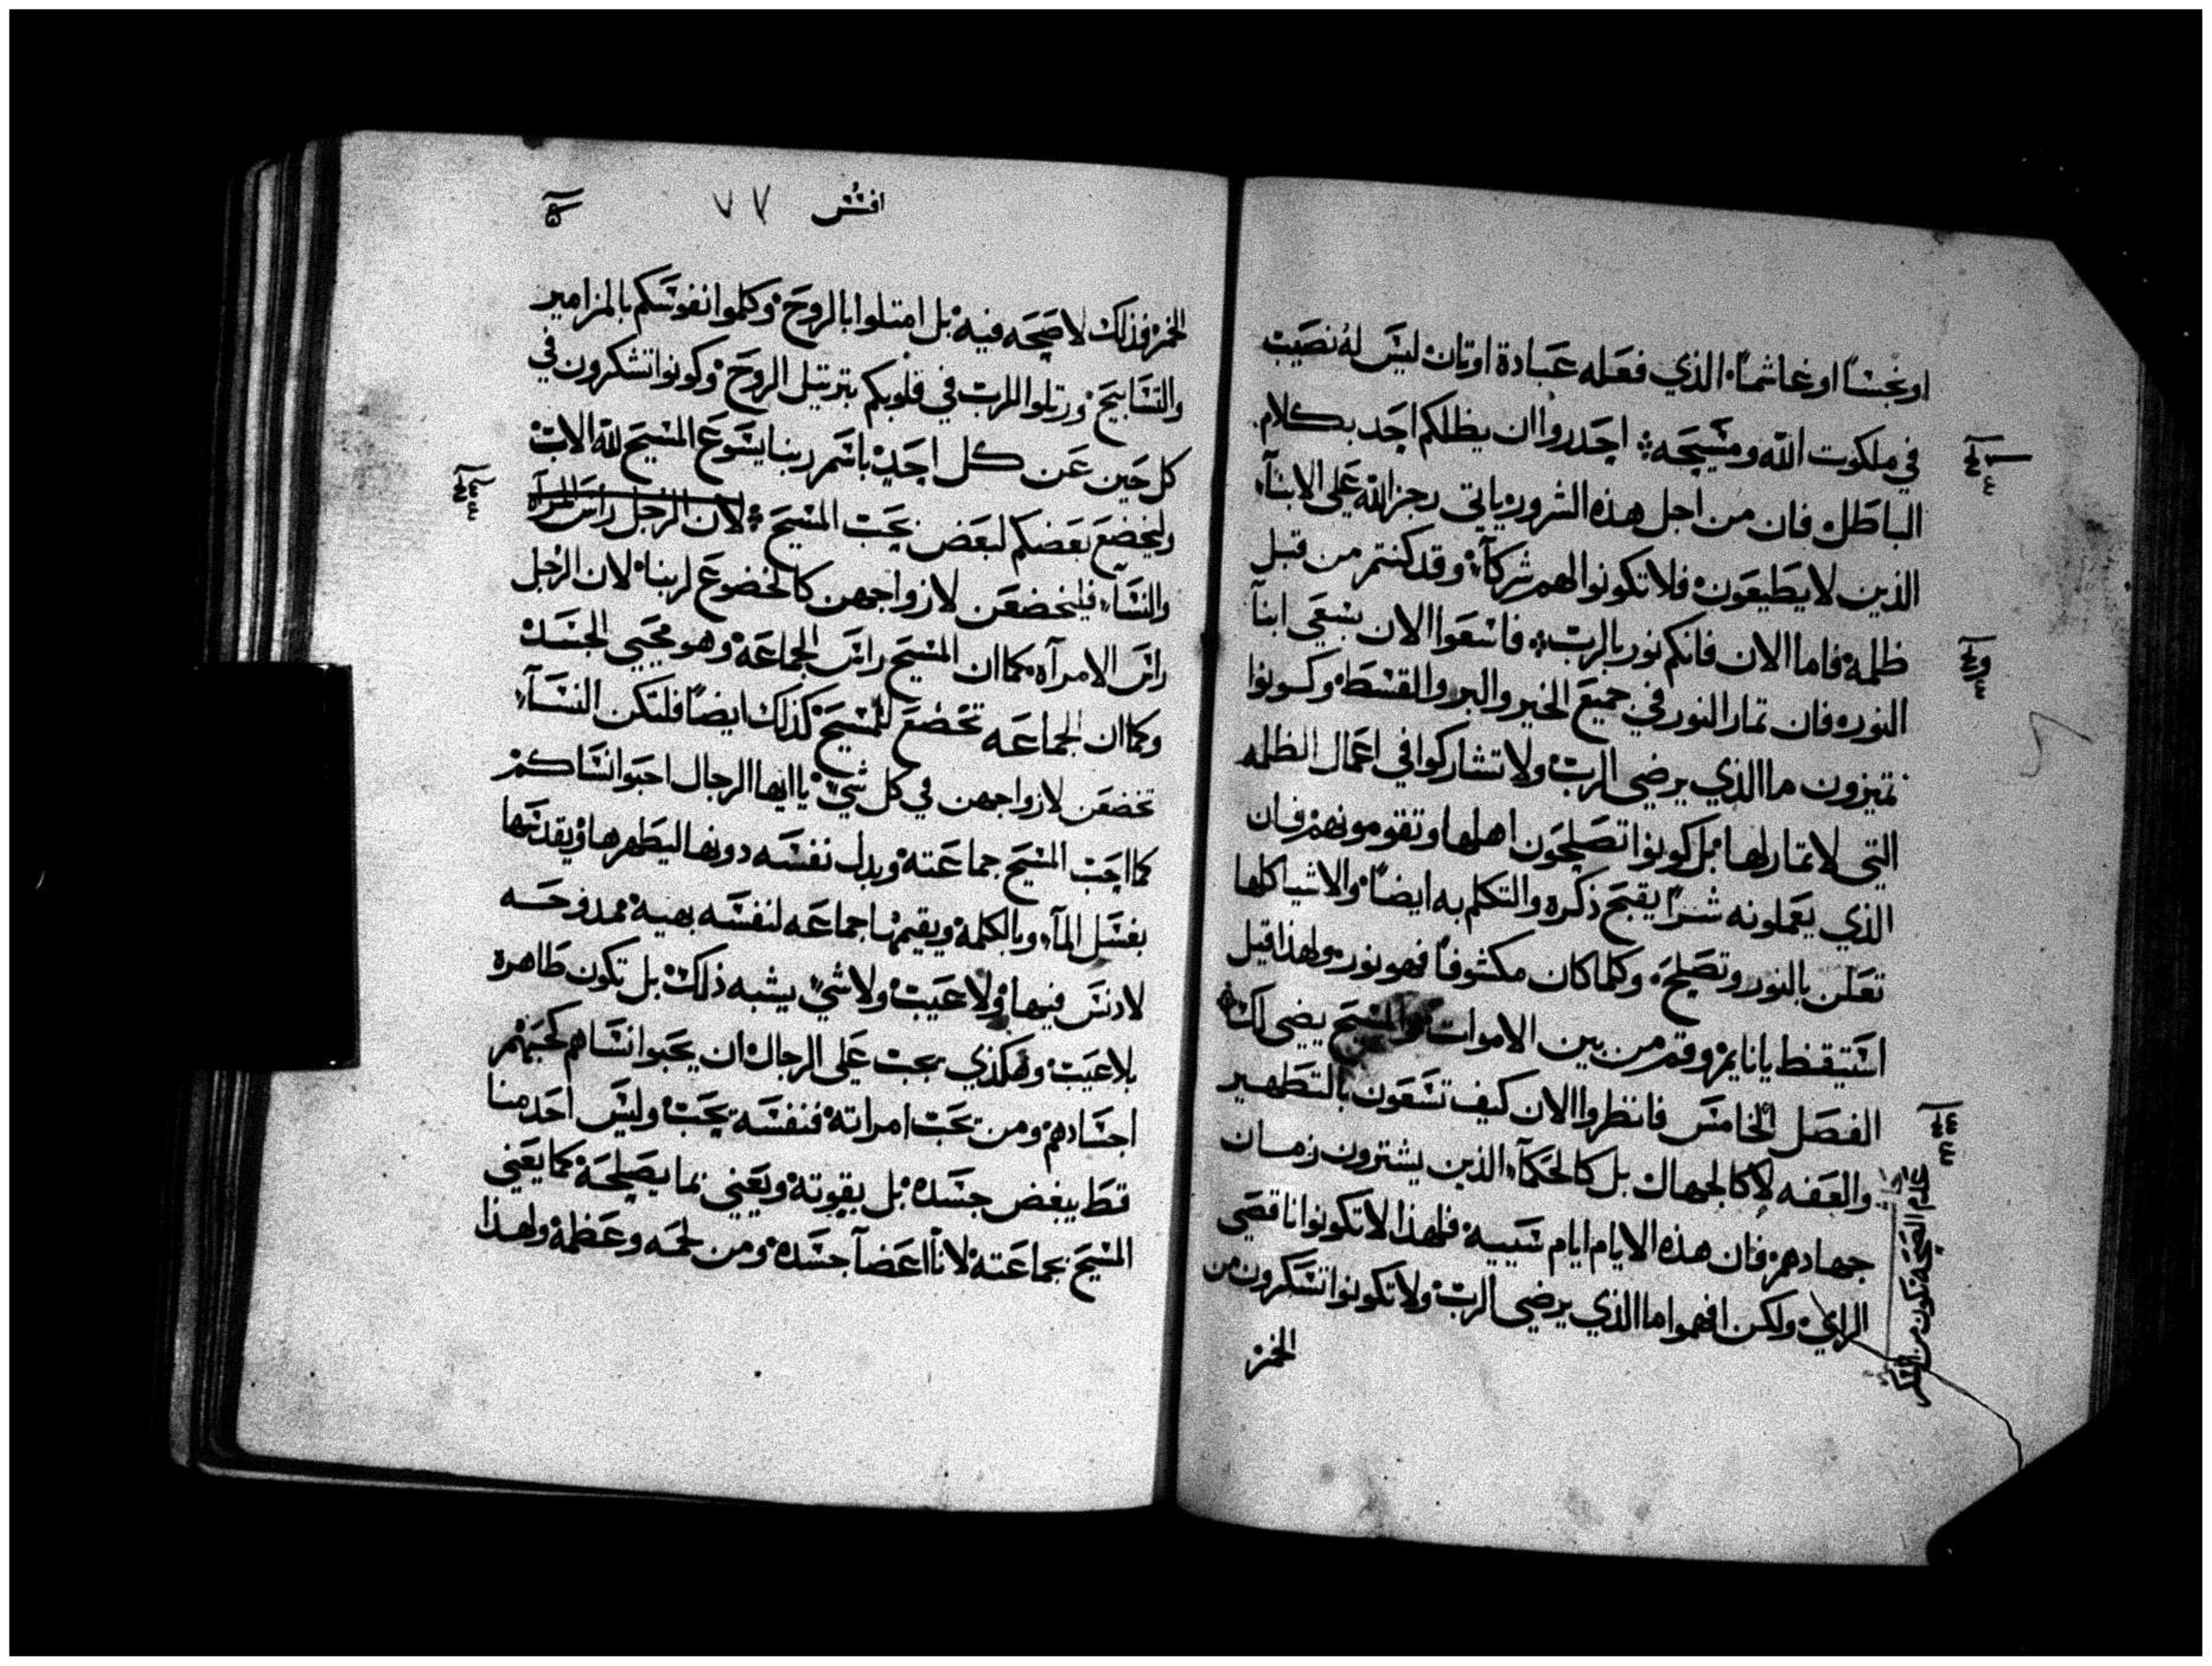 او نجسًا او غاشمًا الذي فعله عبادة اوتان ليس له نصيب
في ملكوت الله ومسيحه احدروا ان يظلكم احد بكلام
الباطل فان من اجل هذه الشرور ياتي رجز الله على الابنآء
الذين لا يطيعون فلا تكونوا لهم شركآء وقد كنتم من قبل
ظلمة فاما الان فانكم نور بالرب فاسعوا الان بسعي ابنآ
النور فان تمار النور في جميع الخير والبر والقسط وكونوا
تميزون ما الذي يرضي الرب ولا تشاركوا في اعمال الظلمه
التي لا تمار لها بل كونوا تصلحون اهلها وتقومونهم فان
الذي يعملونه شرًا يقبح ذكره والتكلم به ايضًا والاشيا كلها
تعلن بالنور وتصلح وكلما كان مكشوفًا فهو نور ولهذا قيل
استيقظ يا نايم وقم من بين الاموات والمسيح يضي لك
الفصل الخامس فانظروا الان كيف تسعون بالتطهير
والعفه لا كالجهال بل كالحكمآء الذين يشترون زمان
جهادهم فان هذه الايام ايام شيبيه فلهذا لا تكونوا ناقصي
الراي ولكن افهموا ما الذي يرضي الرب ولا تكونوا تسكرون من
الخمر
عدم الصحه تكون من السكر
افسس ٧٧
الخمر فذلك لا صحه فيه بل امتلوا بالروح وكلموا نفوسكم بالمزامير
والتسابيح ورتلوا للرب في قلوبكم بترتيل الروح وكونوا تشكرون في
كل حين عن كل احد باسم ربنا يسوع المسيح لله الاب
وليخضع بعضكم لبعض بحب المسيح لان الرجل راس المراه
والنسآء فليخضعن لازواجهن كالخضوع لربنا لان الرجل
راس الامرآه كما ان المسيح راس الجماعة وهو محيي الجسد
وكما ان الجماعه تخضع للمسيح كذلك ايضًا فلتكن النسآء
تخضعن لازواجهن في كل شي يا ايها الرجال احبوا نساكم
كما احب المسيح جماعته وبدل نفسه دونها ليطهرها ويقدسها
بغسل المآء وبالكلمة ويقيمها جماعه لنفسه بهية ممدوحه
لا دنس فيها ولا عيب ولا شي يشبه ذلك بل تكون طاهرة
بلا عيب وهكذي يجب على الرجال ان يحبوا نساهم كحبهم
اجسادهم ومن يحب امراته فنفسه يحب وليس احد منا
قط يبغض جسده بل يقوته ويعني بما يصلحة كما يعني
المسيح بجماعته لانا اعضآ جسده ومن لحمه وعظمه ولهذا